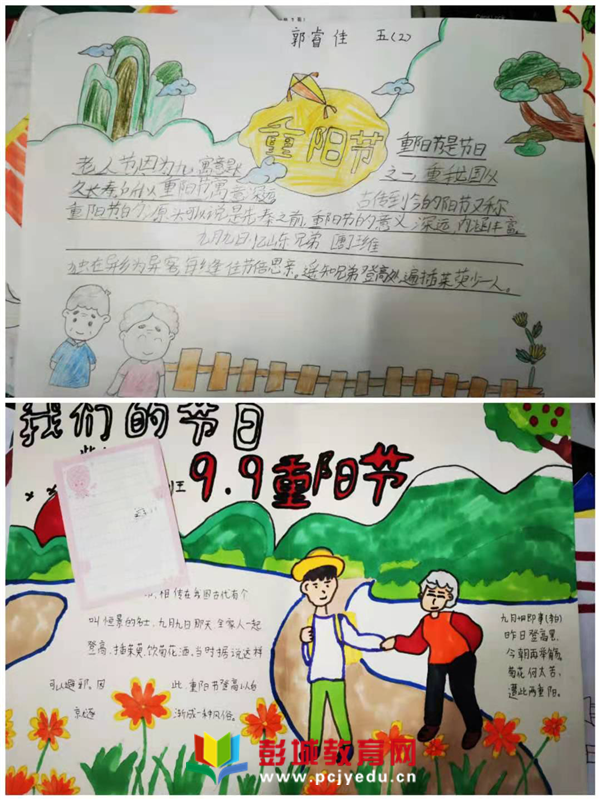 郭睿佳 五(2)
重阳节
重阳节是节日
老人节因为九寓意是
之一
久长寿
重阳节寓意深远
古传到今的阳节又称
重阳节的
原头可以说是先秦之前,重阳节的意义深远,内涵丰富。
九月九日忆山东兄弟 唐 王维
独在异乡为异客,每逢佳节倍思亲,遥知兄弟登高处,遍插茱萸少一人。
我们的节日
班
9.9重阳节
相传在我国古代有个
叫恒景的名士,九月九日那天全家人一起
登高、插茱萸、饮菊花酒,当时据说这样
可以避邪。因此重阳节登高
渐成一种风俗。
九月十日即事(李白)
昨日登高罢,
今朝再举觞。
菊花何太苦,
遭此两重阳。
彭城教育网
www.pcjyedu.cn